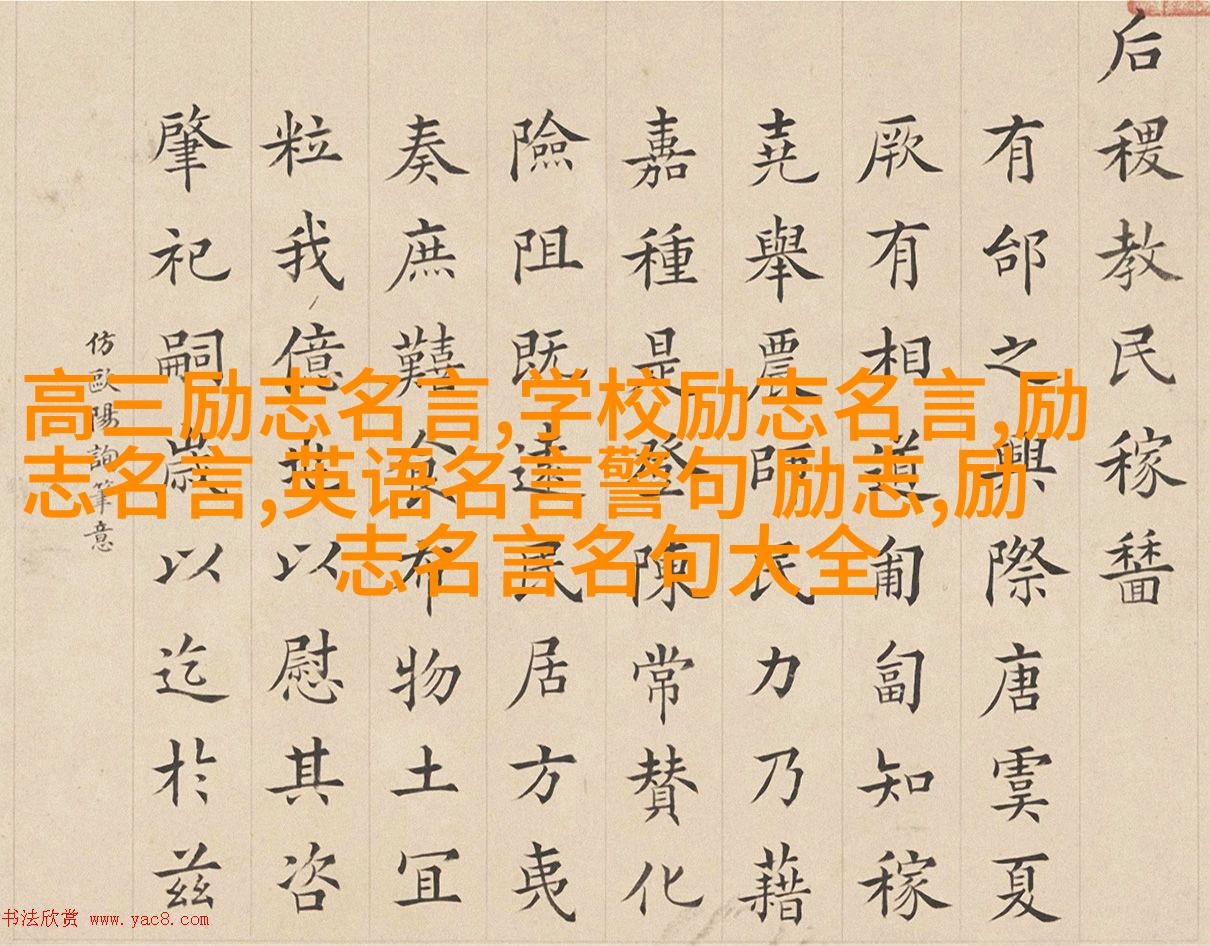 后稷教民稼穡
有邰之興際唐虞夏
厥有相道匍匐知稼
堯舉農師民力乃藉
嘉種是登陳常賛化
險阻既民居方夷
奏庶艱食布物土宜
粒我億世以慰其咨
肇祀嗣歲以迄於兹
仿歐陽詢筆意
高三励志名言,学校励志名言,励
志名言,英语名言警句 励志,励
志名言名句大全
书法欣赏 www.yac8.com